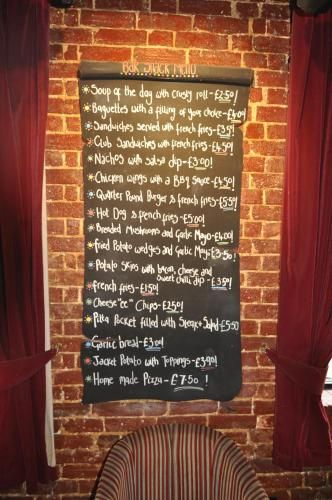 Bar Snack Menu
Soup of the day with crusty roll - £2.50!
Baguettes with a filling of your choice - £4.00!
Sandwiches served with french fries - £3.95!
Club Sandwiches with french fries - £4.50!
Nachos with salsa dip - £3.00!
Chicken wings with a BBQ sauce - £4.50!
Quarter Pound Burger & french fries - £5.50!
Hot Dog & french fries - £5.00!
Breaded Mushrooms and Garlic Mayo - £4.00!
fried Potato wedges and Garlic Mayo - £3.50!
Potato skins with bacon, cheese and
sweet chilli dip - £3.50!
french fries - £1.50!
Cheese "ee" Chips - £2.50!
Pitta Pocket filled with Steak & Salad - £5.50
Garlic bread - £3.00!
Jacket Potato with Toppings - £3.90!
Home made Pizza - £7.50!